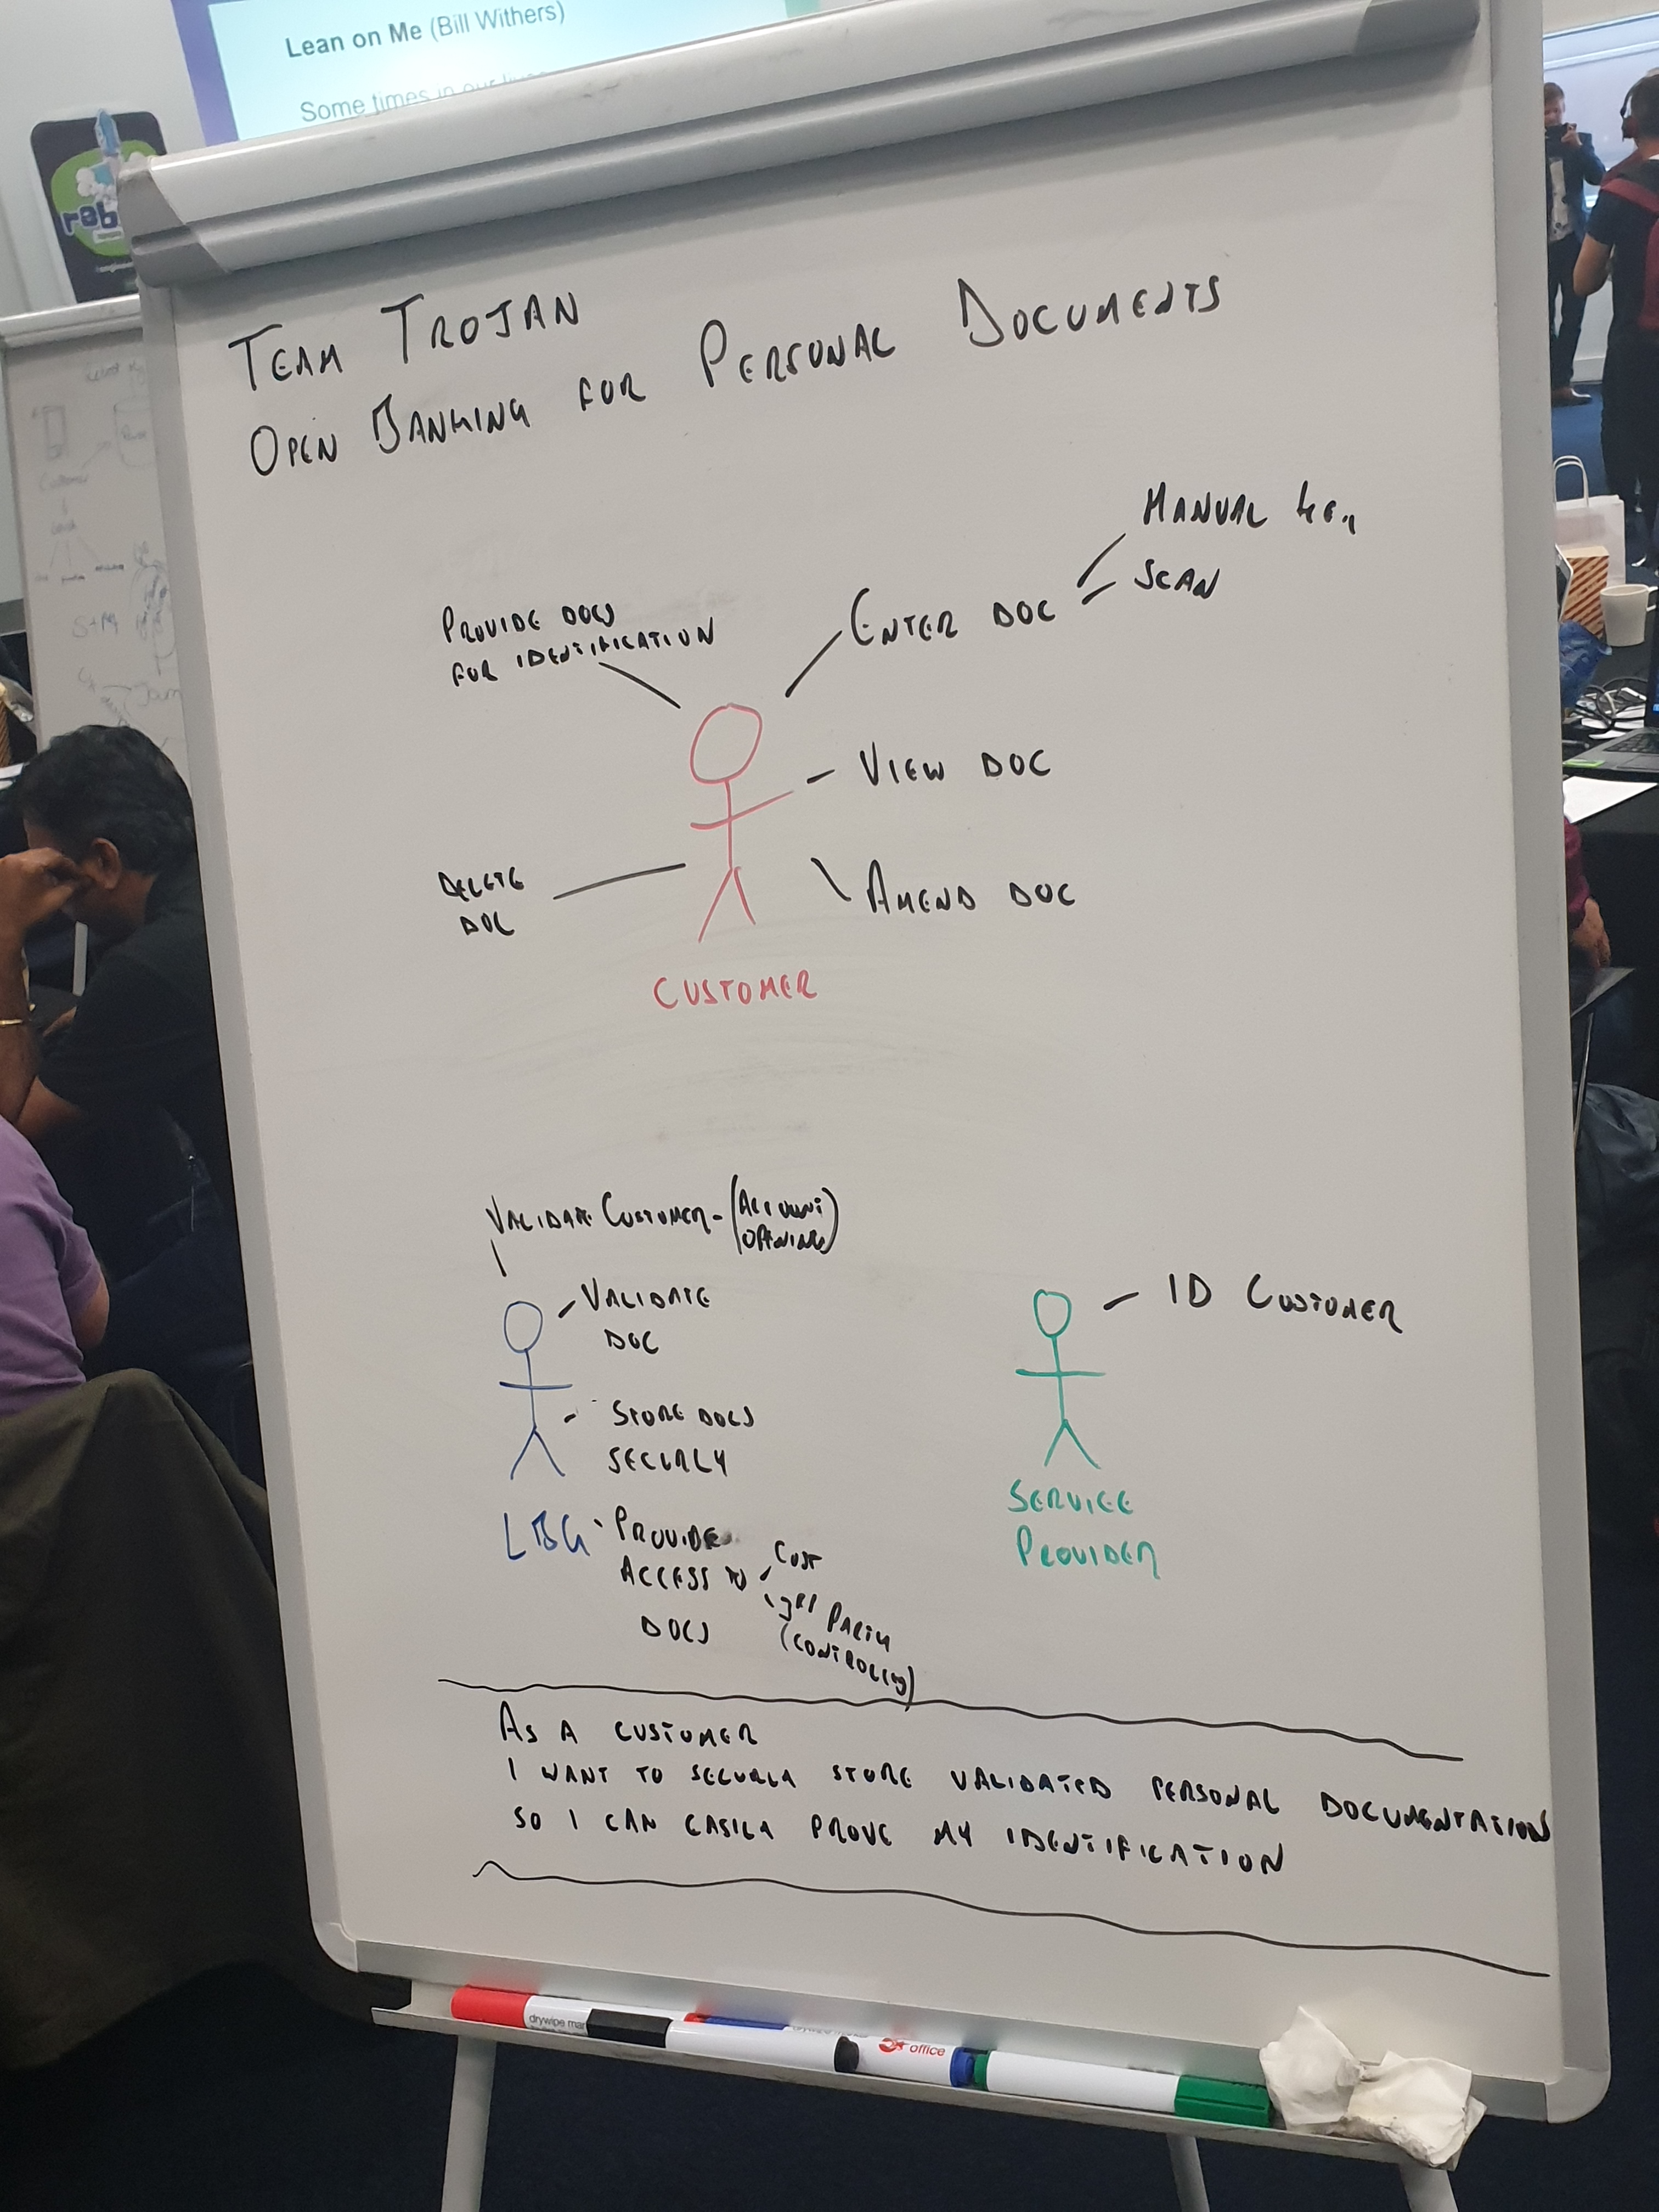 Lean on Me (Bill Withers)
Some times in our
rab
TEAM TROJAN
OPEN BANKING FOR PERSONAL DOCUMENTS
MANUAL KEY
SCAN
ENTER DOC
PROVIDE DOCS
FOR IDENTIFICATION
VIEW DOC
DELETE
DOC
AMEND DOC
CUSTOMER
VALIDATE CUSTOMER - (ACCOUNT
OPENING)
VALIDATE
DOC
ID CUSTOMER
STORE DOCS
SECURLY
SERVICE
PROVIDER
LBG
PROVIDE
ACCESS TO
DOCS
CUST
3RD PARTY
(CONTROLLED)
AS A CUSTOMER
I WANT TO SECURLY STORE VALIDATED PERSONAL DOCUMENTATION
SO I CAN EASILY PROVE MY IDENTIFICATION
drywipe mar
office